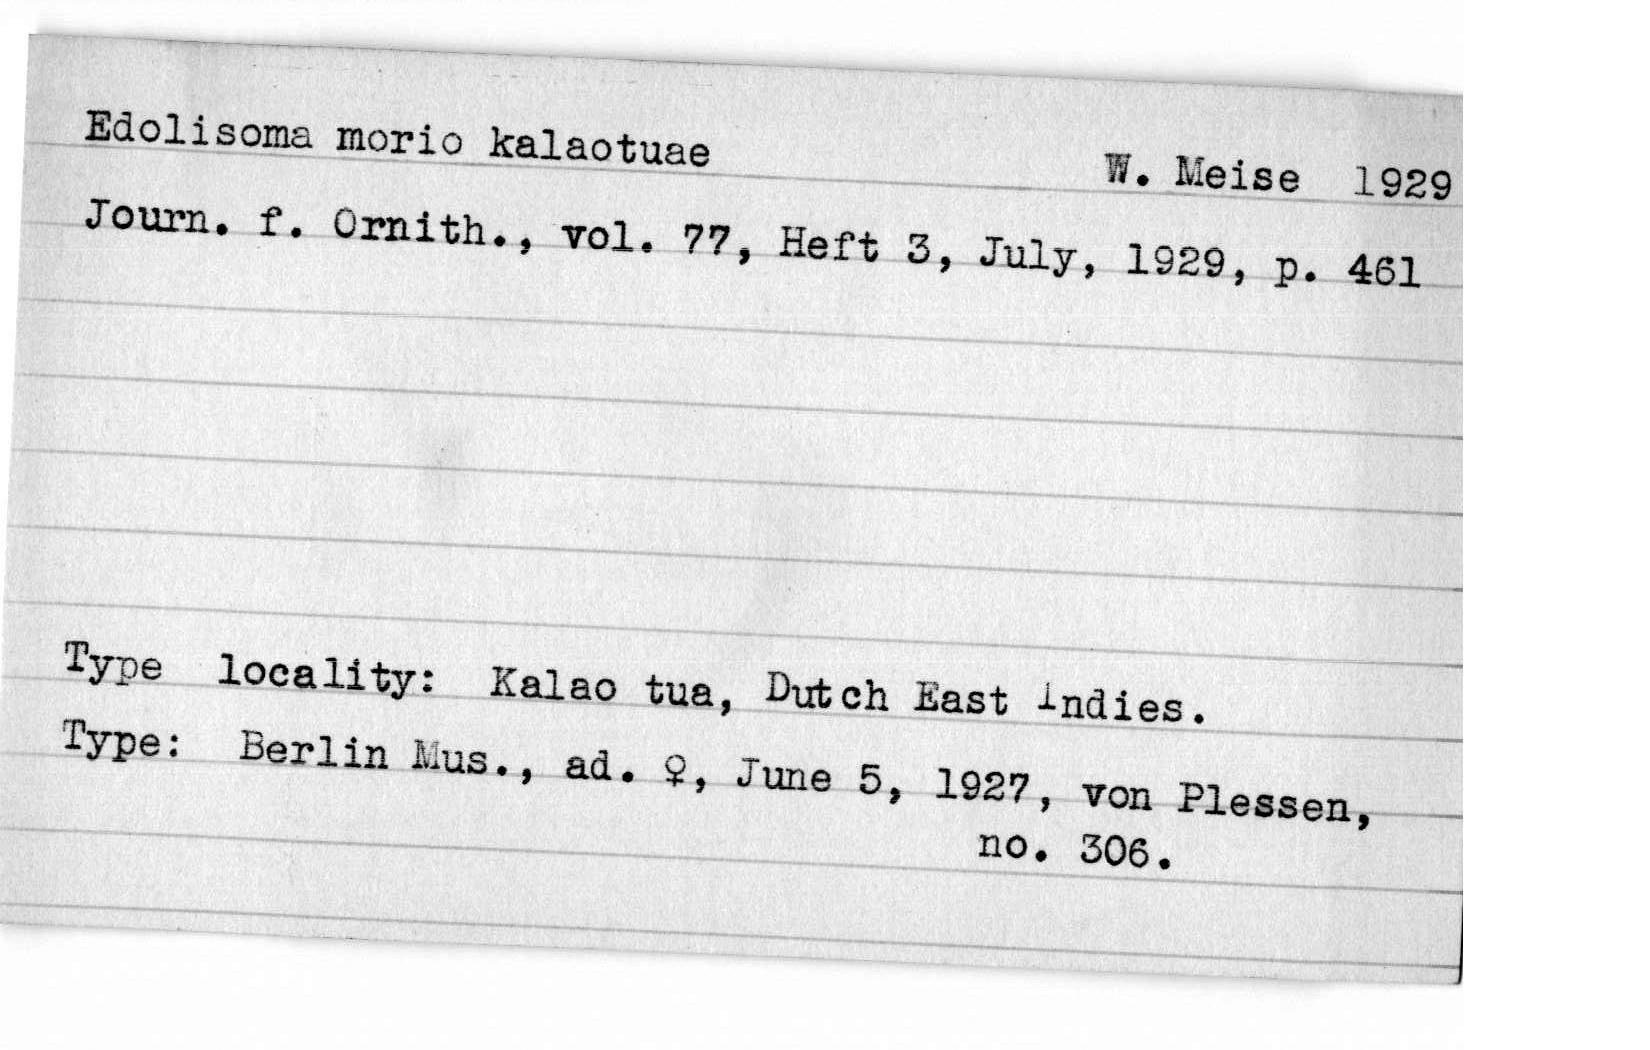 Edolisoma morio kalaotuae W. Meise 1929
Journ. f. Ornith., vol. 77, Heft 3, July, 1929, p. 461
Type locality: Kalao tua, Dutch East Indies.
Type: Berlin Mus., ad. ♀, June 5, 1927, von Plessen,
no. 306.